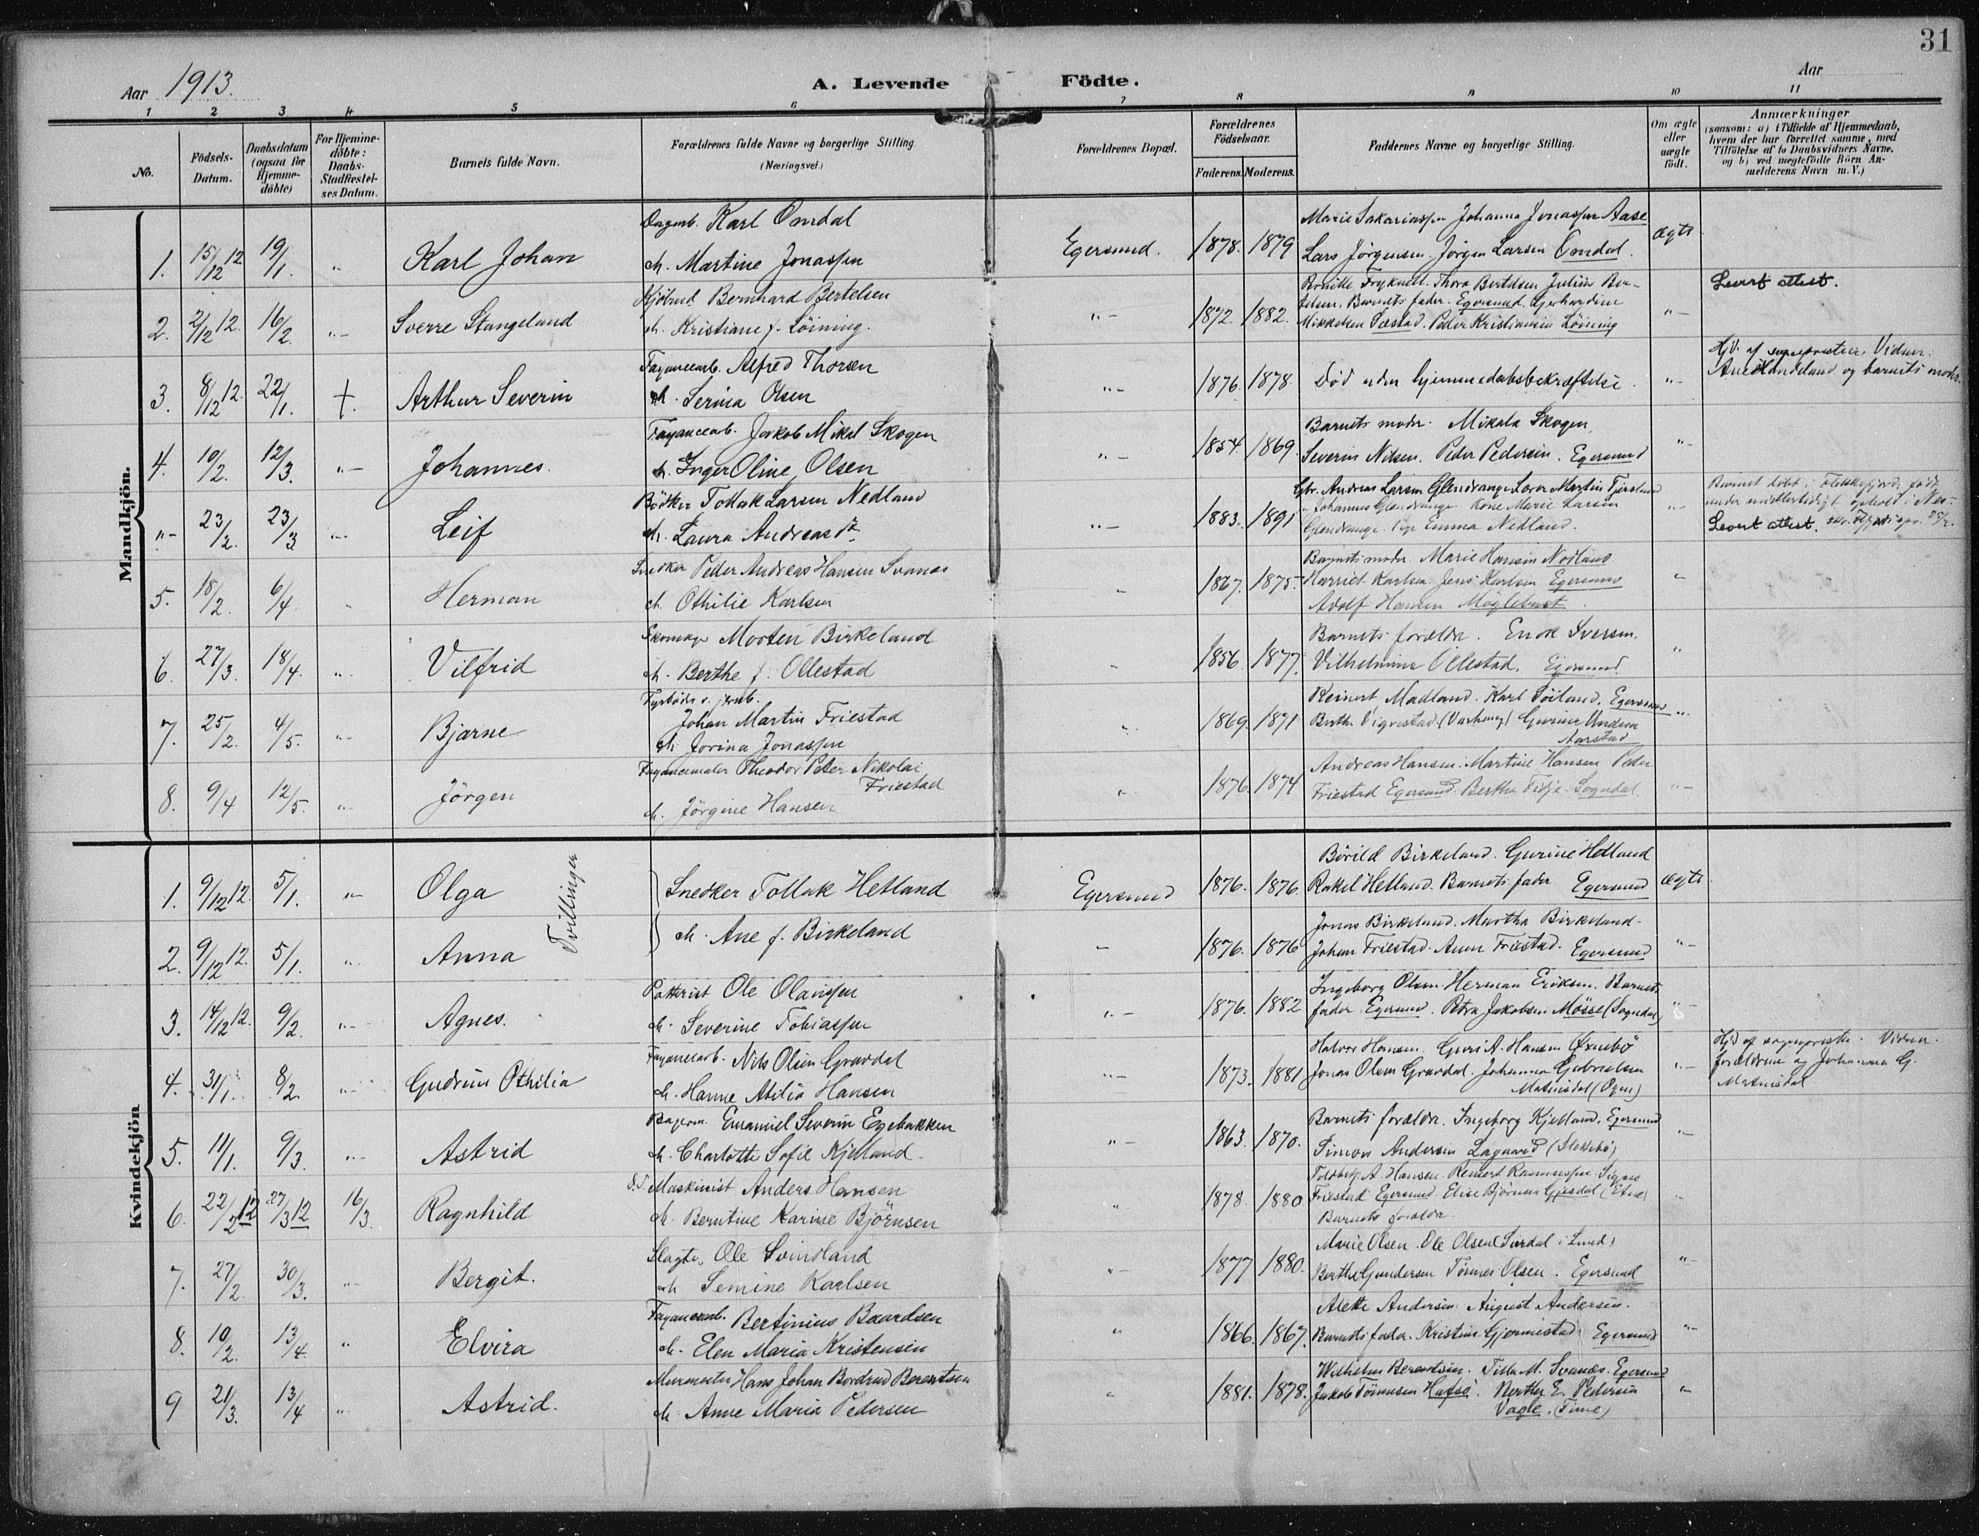 31
Aar 1913.
A. Levende Födte.
Aar
1 2 3 4 5 6 7 8 9 10 11
No.
Födsels-Datum.
Daabsdatum (ogsaa för Hjemme-döbte)
For Hjemme-döbte: Daabs-Stadfæstelses Datum.
Barnets fulde Navn.
Forældrenes fulde Navne og borgerlige Stilling. (Næringsvei.)
Forældrenes Bopæl.
Forældrenes Födselsaar.
Faderens. Moderens.
Faddernes Navne og borgerlige Stilling.
Om ægte eller uægte födt.
Anmærkninger
(saasom: a) i Tilfælde af Hjemmedaab, hvem der har forrettet samme, med Tilföielse af to Daabsvidners Navne, og b) ved uægtefödte Börn Anmelderens Navn m. V.)
Mandkjön.
Dagarb. Karl Omdal
Marie Sakariassen Johanna Jonassen Aase
1. 15/12 12 19/1. " Karl Johan
M. Martine Jonassen
Egersund. 1878. 1879
Lars Jørgensen. Jørgen Larsen Omdal.
ægte
Bernhard Bertelsen
Thora Bertelsen Julius Bertelsen. Barnets fader. Egersund. Gerhardine
Levert attest.
2. 2/12 12. 16/2. "- Sverre Stangeland
M. Kristiane f. Løining.
"- 1872. 1882.
Mikkelsen Sæstad. Peder Kristiansen Løining
"-
Fayancearb. Alfred Thorsen
Hjd. af sognepresten. Vidner:
3. 8/12 12. 22/1. +. Arthur Severin
M. Serina Olsen
"- 1876. 1878
Død uden hjemmedaabsbekræftelse.
"-
og barnets moder.
Fayancearb. Jakob Mikal Skogen
Barnets moder. Mikala Skogen
4. 10/2. 12/3. "- Johannes.
M. Inger Oline Olsen
"- 1854. 1869.
Severin Nilsen. Peder Pedersen. Egersund
"-
Bödker Tollak Larsen Nedland
Gbr. Andreas Larsen Glendrange Lærer Martin
Barnet døbt i Flekkefjord, født
"- 23/2. 23/3 "- Leif
M. Laura Andreasd.
"- 1883. 1891
Johannes Glendrange Kone Marie Larsen
Glendrange. Pige Emma Nedland.
"-
under midlertidigt ophold i
Levert attest.
Snedker Peder Andreas Hansen Svanes
Barnets moder Marie Hansen Nodland
5. 18/2. 6/4. " Herman
M. Othilie Karlsen
" 1867. 1875.
Harriet Karlsen Jens Karlsen Egersund
Adolf Hansen Møglebust.
"
Skomager Morten Birkeland
Barnets forældre. Enok Iversen.
6. 27/3. 18/4. "- Vilfrid
M. Berthe f. Ollestad
" 1856. 1877.
Vilhelmine Ollestad. Egersund.
"
Fyrbøder v. jernb.
Johan Martin Friestad
Reinert Madland. Karl Søiland, Egersund
7. 25/2. 4/5. "- Bjarne
M. Jorina Jonassen
" 1869. 1871
Berthe Vigrestad (Varhaug) Gurine
Aarstad
"-
Fayancemaler Theodor Peter Nikolai Friestad
Andreas Hansen. Martine Hansen Peder
8. 9/4 12/5. "- Jörgen
M. Jörgine Hansen
" 1876. 1874
Friestad Egersund. Berthe Sogndal.
"-
Kvindekjön
Børild Birkeland. Gurine Hetland
1. 9/12 12. 5/1. "- Olga
Tvillinger
Snedker Tollak Hetland
Egersund 1876. 1876.
Rakel Hetland. Barnets fader Egersund
ægte
Jonas Birkeland. Martha Birkeland.
2. 9/12 12. 5/1. " Anna
M. Ane f. Birkeland
"- 1876. 1876
Johan Friestad. Anne Friestad. Egersund
"-
Potterist Ole Olaussen
Ingeborg Olsen Herman Eriksen. Barnets
3. 14/12 12. 9/2. "- Agnes.
M. Severine Tobiassen
"- 1876. 1882
fader Egersund. Petra Jakobsen Mösse (Sogndal)
"-
Fayancearb. Nils Olsen Gravdal
Halvor Hansen. Guri A. Hansen
Hjd af sognepresten. Vidner.
4. 31/1. 8/2. "- Gudrun Othilia
M. Hanne Atilia Hansen
"- 1873. 1881
Jonas Olsen Gravdal. Johanna Gabrielsen
"-
forældrene og Johanna G.
Bagerm. Emanuel Severin Egebakken
Barnets forældre. Ingeborg Kjelland. Egersund
5. 11/1. 9/3. "- Astrid
M. Charlotte Sofie Kjelland.
"- 1863. 1870.
Simon Andersen Lagaard
"-
Maskinist Anders Hansen
A. Hansen Reinert Rasmussen Signe
6. 22/2 12 27/3 12 16/3. Ragnhild
M. Berntine Karine Björnsen
" 1878. 1880
Friestad Egersund Elise Bjørnsen Gjesdal
Barnets forældre.
"
Slagter Ole Svindland
Marie Olsen. Ole Olsen
7. 27/2. 30/3. "- Bergit.
M. Semine Karlsen
"- 1877 1880.
Berthe Gundersen Tønnes Olsen. Egersund
"-
Fayancearb. Bertinius Baardsen
Alette Andersen. August Andersen.
8. 10/2. 13/4. " Elvira
M. Elen Maria Kristensen
" 1866. 1867.
Barnets fader. Kristine Gjermestad. Egersund
"-
Murmester Hans Johan Berentsen
Wilhelm Berentsen. Tilla M. Svanæs. Egersund
9 21/3. 13/4 "- Astrid.
M. Anne Maria Pedersen
" 1881. 1878.
Jakob Tønnesen Hafsø. Berthe E. Pedersen
Vagle. (Time)
"